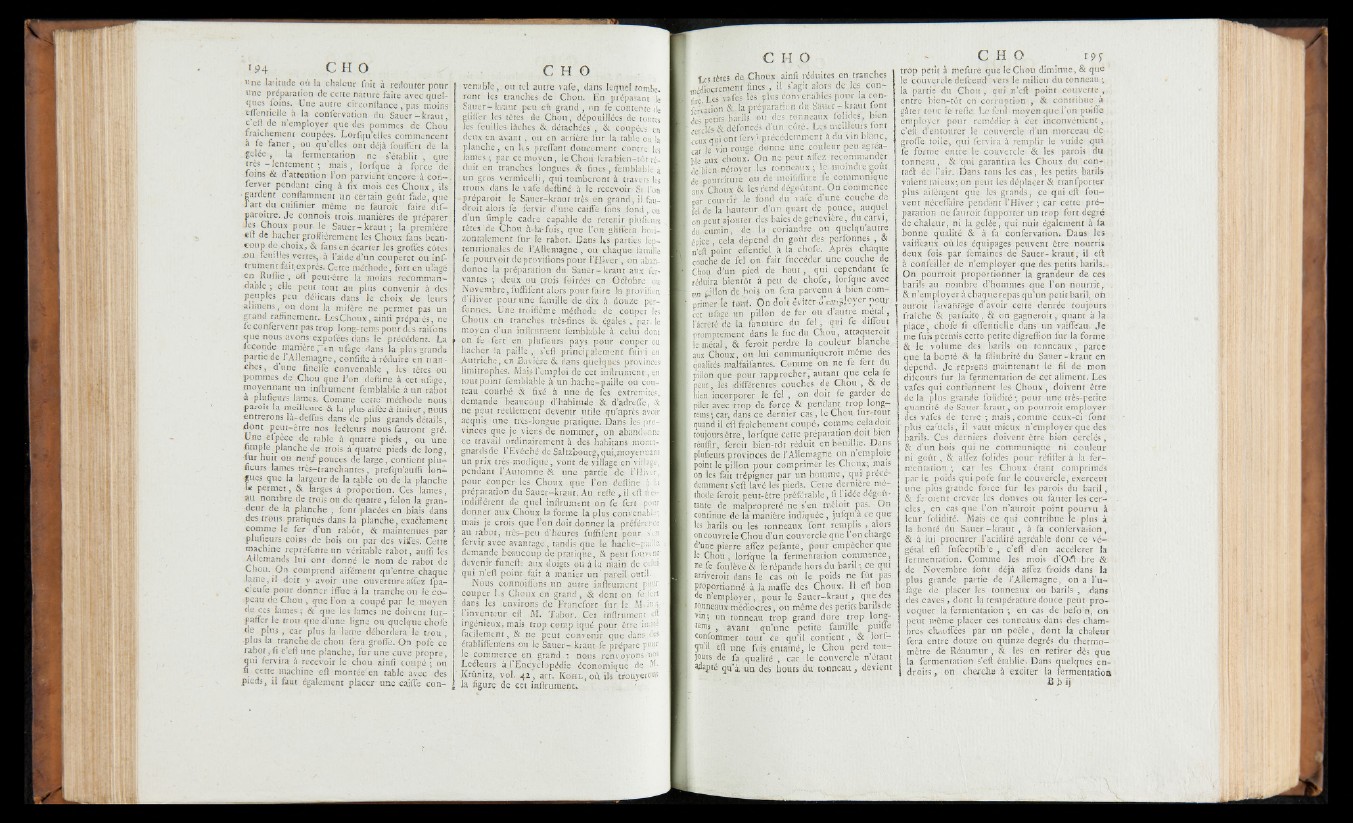 194 CHO
une latitude où la chaleur soit à redouter pour
une préparation de cette nature faite avec quel-
ques soins. Une autre circonstance, pas moins
essentielle à la conservation du Sauer-kraut,
c'est de n'employer que des pommes de Chou
fraîchement coupées. Lorsqu'elles commencent
à se faner, ou qu'elles ont déjà souffert de la
gelée, la fermentation ne s'établit, que
très-lentement; mais, lorsque à force de
soins & d'attention l'on parvient encore à con-
server pendant cinq à six mois ces Choux, ils
gardent constamment un certain goût fade, que
l'art du cuisinier même ne sauroit faire dis-
paroître. Je connois trois manières de préparer
les Choux pour le Sauer-kraut; la première
est de hacher grossièrement les Choux sans beau-
coup de choix, & sans en écarter les grosses côtes
ou feuilles vertes, à l'aide d'un couperet ou ins-
trument fait exprès. Cette méthode, fort en usage
en Russie, est peut-être la moins recomman-
dable; elle peut tout au plus convenir à des
peuples peu délicats dans le choix de leurs
alimens, ou dont la misère ne permet pas un
grand raffinement. Les Choux, ainsi préparés, ne
se conservent pas trop long-tems pour des raisons
que nous avons exposées dans le précédent. La
seconde manière, en usage dans la plus grande
partie de l'Allemagne, consiste à réduire en tran-
ches, d'une finesse convenable, les têtes ou
pommes de Chou que l'on destine à cet usage,
moyennant un instrument semblable à un rabot
à plusieurs lames. Comme cette méthode nous
paroît la meilleure & la plus aisée à imiter, nous
entrerons là-dessus dans de plus grands détails,
dont peut-être nos lecteurs nous sauront gré.
Une espèce de table à quatre pieds, ou une
simple planche de trois à quatre pieds de long,
sur huit ou neuf pouces de large, contient plu-
sieurs lames très-tranchantes, presqu'aussi lon-
gues que la largeur de la table ou de la planche
le permet, & larges à proportion. Ces lames,
au nombre de trois ou de quatre, selon la gran-
deur de la planche, sont placées en biais dans
des trous pratiqués dans la planche, exactement
comme le fer d'un rabot, & maintenues par
plusieurs coins de bois ou par des visses. Cette
machine représente un véritable rabot, aussi les
Allemands lui ont donné le nom de rabot de
Chou. On comprend aisément qu'entre chaque
lame, il doit y avoir une ouverture assez spa-
cieuse pour donner issue à la tranche ou le co-
peau de Chou, que l'on a coupé par le moyen
de ces lames; & que les lames ne doivent sur-
passer le trou que d'une ligne ou quelque chose
de plus, car plus la lame débordera le trou,
plus la tranche de chou sera grosse. On pose ce
rabot, si c'est une planche, sur une cuve propre,
qui servira à recevoir le chou ainsi coupé; on
si cette machine est montée en table avec des
pieds, il faut également placer une caisse con-
CHO
venable, ou tel autre vase, dans lequel tombe-
ront les tranches de Chou. En préparant le
Sauer-kraut peu en grand, on se contente de
glisser les têtes de Chou, dépouillées de toutes
les feuilles lâches & détachées, & coupées en
deux en avant, ou en arrière sur la table ou la
planche, en les pressant doucement contre les
lames; par ce moyen, le Chou sera bien-tôt ré-
duit en tranches longues & fines, semblable à
un gros vermicelli, qui tomberont à travers les
trous dans le vase destiné à le recevoir. Si l'on
préparoit le Sauer-kraut très en grand, il fau-
droit alors se servir d'une caisse sans fond, ou
d'un simple cadre capable de retenir plusieurs
têtes de Chou à-la-fois, que l'on glissera hori-
zontalement sur le rabot. Dans les parties sep-
tentrionales de l'Allemagne, où chaque famille
se pourvoit de provisions pour l'Hiver, on aban-
donne la préparation du Sauer-kraut aux ser-
vantes; deux ou trois soirées en Octobre ou
Novembre, suffisent alors pour faire la provision
d'hiver pour une famille de dix à douze per-
sonnes. Une troisième méthode de couper les
Choux en tranches très-fines & égales, par le
moyen d'un instrument semblable à celui dont
on se sert en plusieurs pays pour couper ou
hacher la paille, s'est principalement suivi en
Autriche, en Bavière & dans quelques provinces
limitrophes. Mais l'emploi de cet instrument, en
tout point semblable à un hache-paille ou cou-
teau courbé & fixé à une de ses extrémités,
demande beaucoup d'habitude & d'adresse, &
ne peut reellement devenir utile qu'après avoir
acquis une très-longue pratique. Dans les pro-
vinces que je viens de nommer, on abandonne
ce travail ordinairement à des habitans monta-
gnards de l'Evêché de Saltzbourg, qui, moyennant
un prix très modique, vont de village en village,
pendant l'Automne & une partie de l'Hiver,
pour couper les Choux que l'on destine à la
préparation du Sauer-kraut. Au reste, il est très-
indifférent de quel instrument on se sert pour
donner aux Choux la forme la plus convenable;
mais je crois que l'on doit donner la préférence
au rabot, très-peu d'heures suffisent pour s'en
servir avec avantage, tandis que le hache-paille
demande beaucoup de pratique, & peut souvent
devenir funeste aux doigts ou à la main de celui
qui n'est point fait à manier un pareil outil.
Nous connoissons un autre instrument pour
couper les Choux en grand, & dont on se sert
dans les environs de Francfort sur le Mein;
l'inventeur est M. Tabor. Cet instrument est
ingénieux, mais trop compliqué pour être imité
facilement, & ne peut convenir que dans des
établissemens où le Sauer-kraut se prépare pour
le commerce en grand: nous renvoyons nos
Lecteurs à l'Encyclopédie économique de M.
Krünitz, vol. 42, art. KOHL, où ils trouveront
la figure de cet instrument.
CHO
Les têtes de Choux ainsi réduites en tranches
médiocrement fines, il s'agit alors de les con-
fire. Les vases les plus convenables pour la con-
servation & la préparation du Sauer-kraut sont
des petits barils ou des tonneaux solides, bien
cerclés & défoncés d'un côté. Les meilleurs sont
ceux qui ont servi précédemment à du vin blanc,
car le vin rouge donne une couleur peu agréa-
ble aux choux. On ne peut assez recommander
de bien nétoyer les tonneaux; le moindre goût
de pourriture ou de moisissure se communique
aux Choux & les rend dégoûtant. On commence
par couvrir le fond du vase d'une couche de
sel de la hauteur d'un quart de pouce, auquel
on peut ajouter des baies de genevière, du carvi,
du cumin, de la coriandre ou quelqu'autre
épice, cela dépend du goût des personnes, &
n'est point essentiel à la chose. Après chaque
couche de sel on fait succéder une couche de
Chou d'un pied de haut, qui cependant se
réduira bientôt à peu de chose, lorsque avec
un pillon de bois on sera parvenu à bien com-
primer le tout. On doit éviter d'employer pour
cet usage un pillon de fer ou d'autre métal,
l'acreté de la saumure du sel, qui se dissout
promptement dans le suc du Chou, attaqueroit
le métal, & feroit perdre la couleur blanche
aux Choux, ou lui communiqueroit même des
qualités malfaisantes. Comme on ne se sert du
pillon que pour rapprocher, autant que cela se
peut, les différentes couches de Chou, & de
bien incorporer le sel, on doit se garder de
piler avec trop de force & pendant trop long-
tems; car, dans ce dernier cas, le Chou sur-tout
quand il est fraîchement coupé, comme cela doit
toujours être, lorsque cette préparation doit bien
réussir, seroit bien-tôt réduit en bouillie. Dans
plusieurs provinces de l'Allemagne on n'emploie
point le pillon pour comprimer les Choux, mais
on les fait trépigner par un homme, qui précé-
demment s'est lavé les pieds. Cette dernière mé-
thode seroit peut-être préférable, si l'idée dégoû-
tante de malpropreté ne s'en mêloit pas. On
continue de la manière indiquée, jusqu'à ce que
les barils ou les tonneaux sont remplis, alors
on couvre le Chou d'un couvercle que l'on charge
d'une pierre assez pesante, pour empêcher que
le Chou, lorsque la fermentation commence,
ne se soulève & se répande hors du baril; ce qui
arriveroit dans le cas où le poids ne fût pas
proportionné à la masse des Choux. Il est bon
de n'employer, pour le Sauer-kraut, que des
tonneaux médiocres, ou même des petits barils de
vin; un tonneau trop grand dure trop long-
tems, avant qu'une petite famille puisse
consommer tout ce qu'il contient, & lors-
qu'il est une fois entamé, le Chou perd tou-
jours de sa qualité, car le couvercle n'étant
adapté qu'à un des bouts du tonneau, devient
CHO 195
trop petit à mesure que le Chou diminue, & que
le couvercle descend vers le milieu du tonneau;
la partie du Chou, qui n'est point couverte,
entre bien-tôt en corruption, & contribue à
gâter tout le reste. Le seul moyen que l'on puisse
employer pour remédier à cet inconvénient,
c'est d'entourer le couvercle d'un morceau de
grosse toile, qui servira à remplir le vuide qui
se forme entre le couvercle & les parois du
tonneau, & qui garantira les Choux du con-
tact de l'air. Dans tous les cas, les petits barils
valent mieux; on peut les déplacer & transporter
plus aisément que les grands, ce qui est sou-
vent nécessaire pendant l'Hiver; car cette pré-
paration ne sauroit supporter un trop fort degré
de chaleur, ni la gelée, qui nuit également à la
bonne qualité & à sa conservation. Dans les
vaisseaux où les équipages peuvent être nourris
deux fois par semaines de Sauer-kraut, il est
à conseiller de n'employer que des petits barils.
On pourroit proportionner la grandeur de ces
barils au nombre d'hommes que l'on nourrit,
& n'employer à chaque repas qu'un petit baril, on
auroit l'avantage d'avoir cette denrée toujours
fraîche & parfaite, & on gagneroit, quant à la
place, chose si essentielle dans un vaisseau. Je
me suis permis cette petite digression sur la forme
& le volume des barils ou tonneaux, parce
que la bonté & la salubrité du Sauer-kraut en
dépend. Je reprens maintenant le fil de mon
discours sur la fermentation de cet aliment. Les
vases qui contiennent les Choux, doivent être
de la plus grande solidité; pour une très-petite
quantité de Sauer-kraut, on pourroit employer
des vases de terre; mais, comme ceux-ci sont
plus casuels, il vaut mieux n'employer que des
barils. Ces derniers doivent être bien cerclés,
& d'un bois qui ne communique ni couleur
ni goût, & assez solides pour résister à la fer-
mentation; car les Choux étant comprimés
par le poids qui pose sur le couvercle, exercent
une plus grande force sur les parois du baril,
& feroient crever les douves ou sauter les cer-
cles, en cas que l'on n'auroit point pourvu à
leur solidité. Mais ce qui contribue le plus à
la bonté du Sauer-kraut, à sa conservation,
& à lui procurer l'acidité agréable dont ce vé-
gétal est susceptible, c'est d'en accélerer la
fermentation. Comme les mois d'Octobre &
de Novembre sont déjà assez froids dans la
plus grande partie de l'Allemagne, on a l'u-
sage de placer les tonneaux ou barils, dans
des caves, dont la température douce peut pro-
voquer la fermentation; en cas de besoin, on
peut même placer ces tonneaux dans des cham-
bres chauffées par un poêle, dont la chaleur
sera entre douze ou quinze degrés du thermo-
mètre de Réaumur, & les en retirer dès que
la fermentation s'est établie. Dans quelques en-
droits, on cherche à exciter la fermentation
B b ij